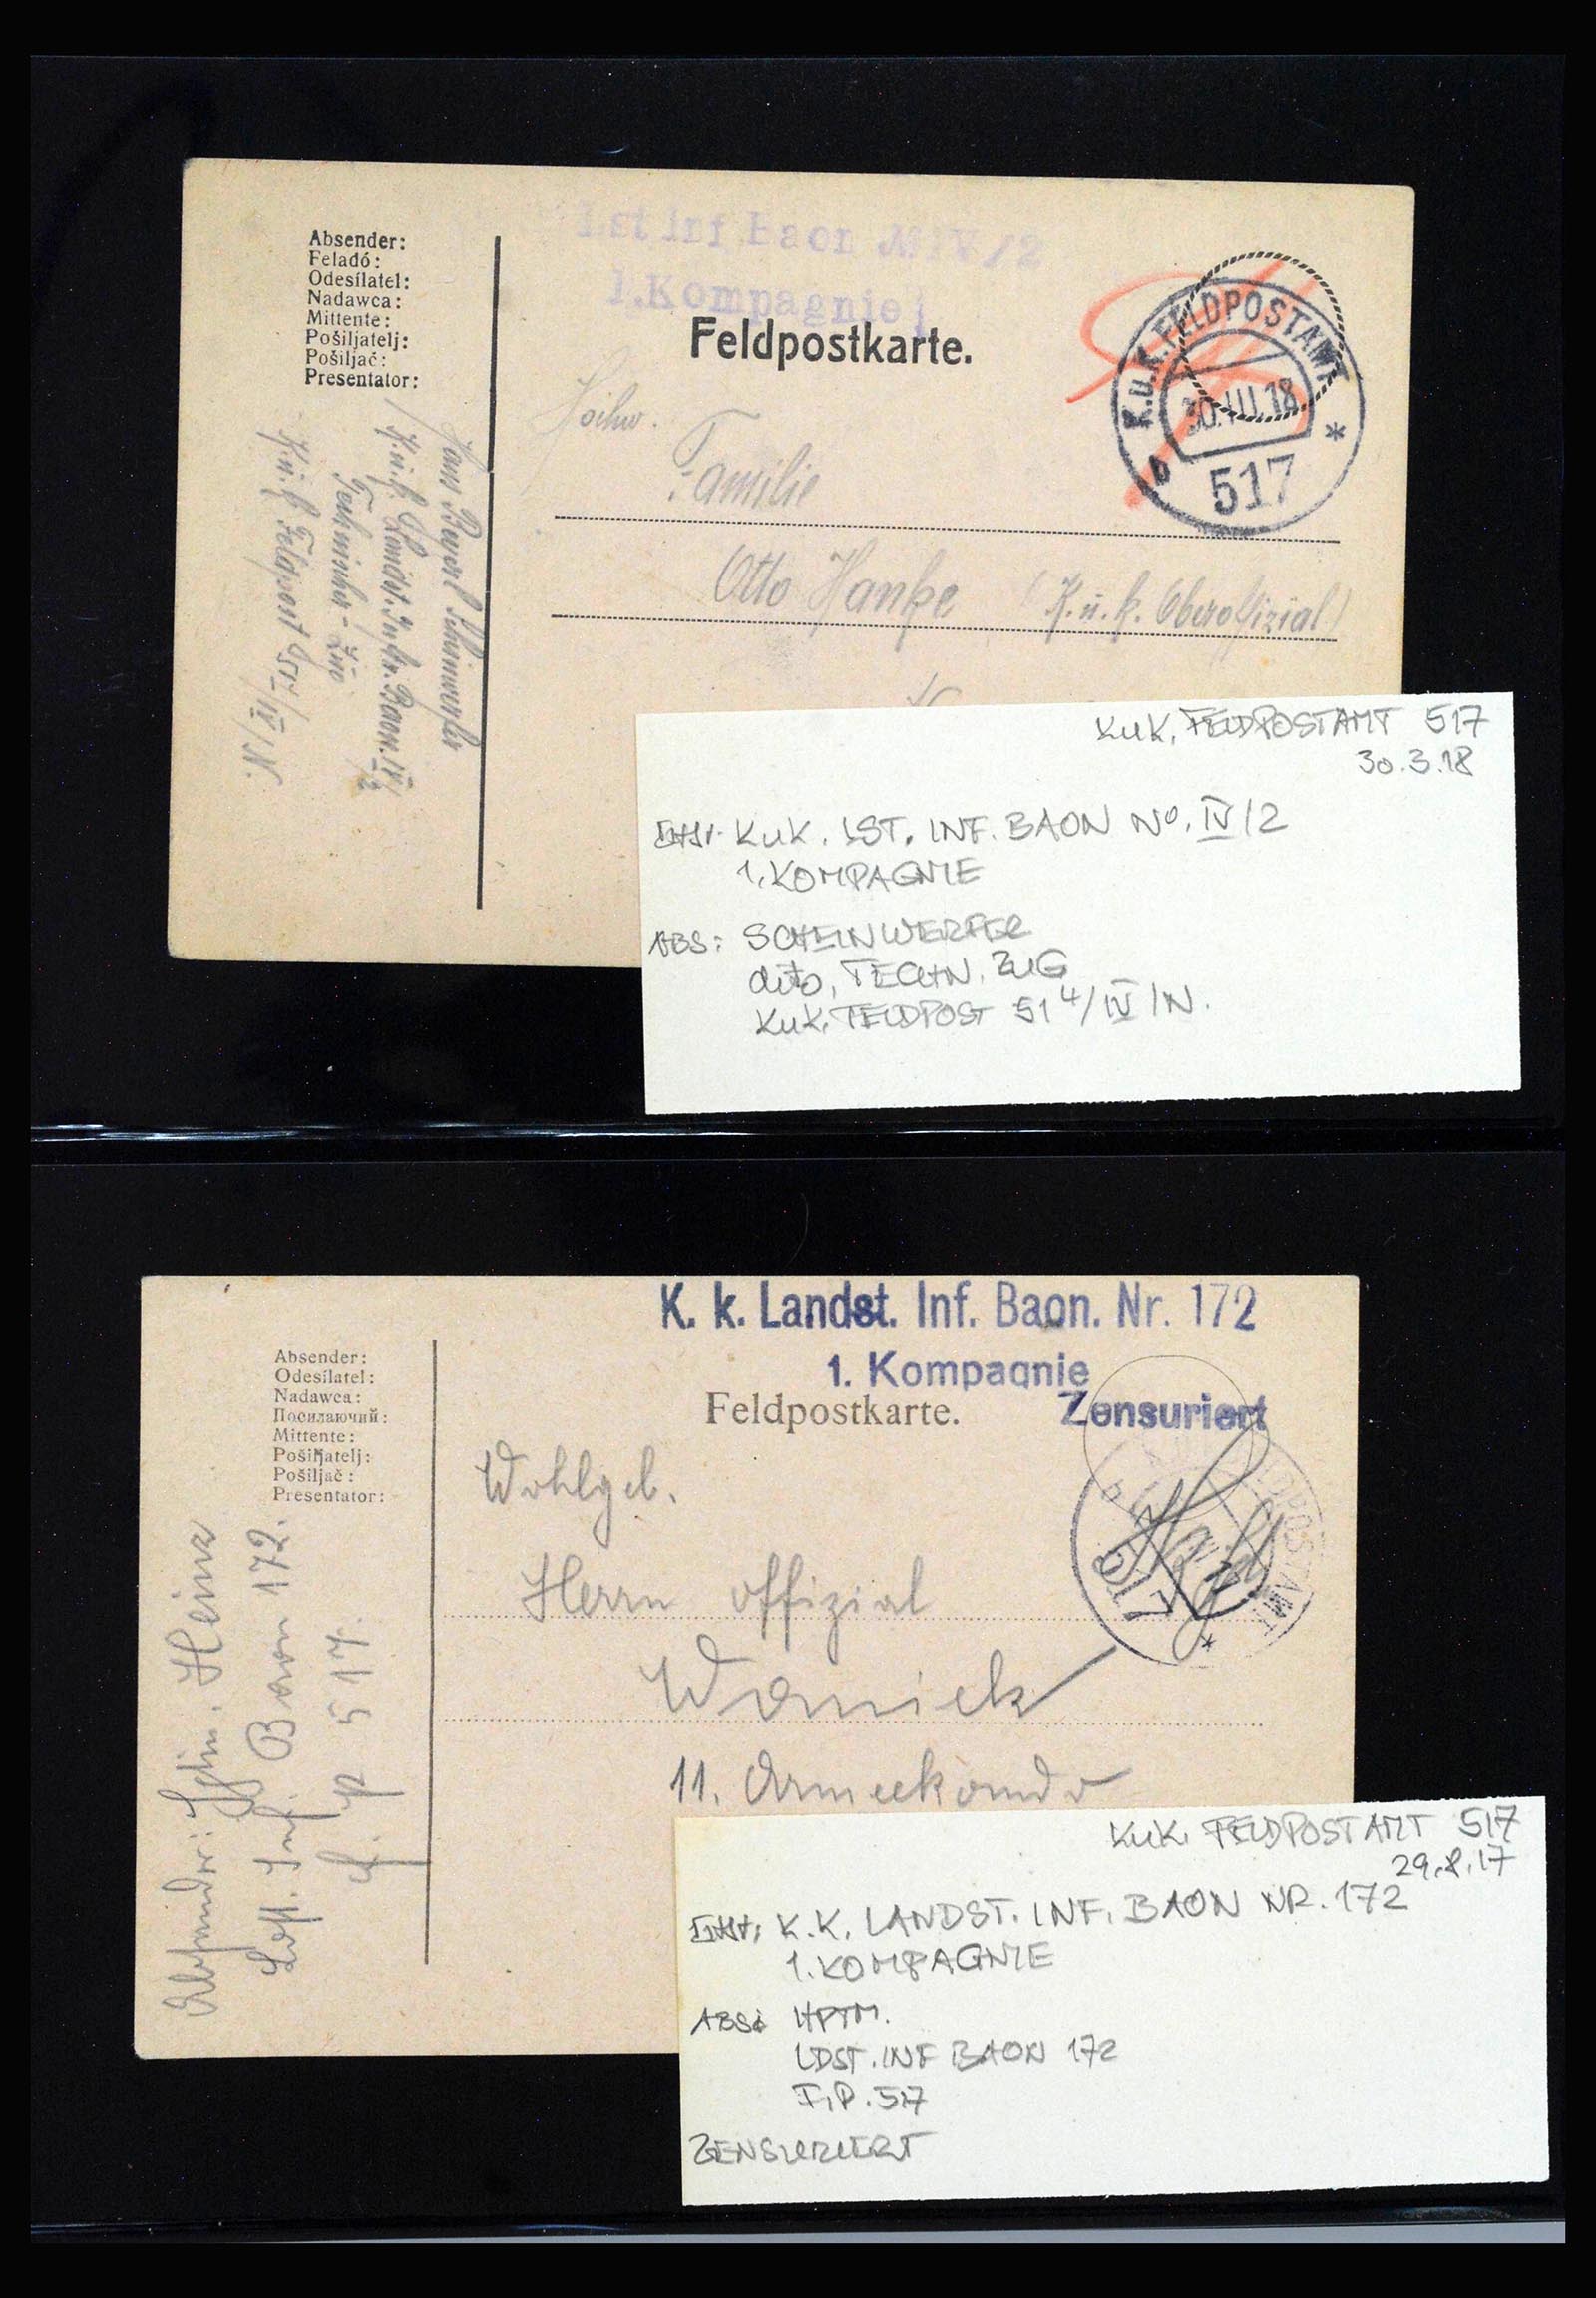 Lst Inf Baon № IV/2
1.Kompagnie
Absender:
Feladó:
Odesílatel:
Nadawca:
Mittente:
Pošiljatelj:
Pošiljač:
Presentator:
Feldpostkarte.
K.u.K. FELDPOSTAMT
30.III.18
b *
517
Familie
Otto Hanke (K.u.k. Oberoffizial)
Hans
K.u.k. Landst. Inftr. Baon. IV/2
Technischer-Zug
K.u.k. Feldpost 514/IV/N.
KUK. FELDPOSTAMT 517
30.3.18
KUK. LST. INF. BAON No. IV/2
1. KOMPAGNIE
ABS: SCHEINWERFER
dito, TECHN. ZUG
KUK. FELDPOST 514/IV/N.
K. k. Landst. Inf. Baon. Nr. 172
1. Kompagnie
Zensuriert
Absender:
Odesílatel:
Nadawca:
Посилаючий:
Mittente:
Pošiljatelj:
Pošiljač:
Presentator:
Feldpostkarte.
FELDPOSTAMT
517
b *
Wohlgeb.
Herrn Offizial
Wanick
11. Armeekomdo
Absender: Heinz
Ldst. Inf. Baon 172.
F. P. 517.
KUK. FELDPOSTAMT 517
29.8.17
K.K. LANDST. INF. BAON NR. 172
1. KOMPAGNIE
ABS: HPTM.
LDST. INF BAON 172
F.P. 517
ZENSURIERT